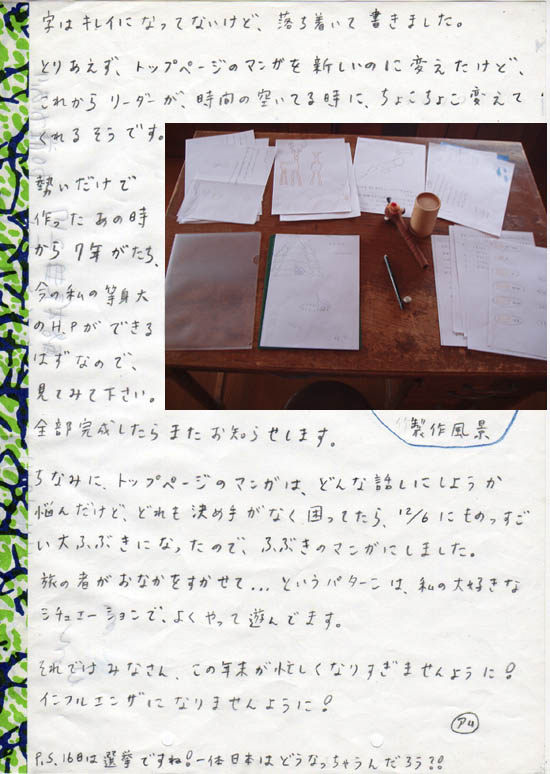 字はキレイになってないけど、落ち着いて書きました。
とりあえず、トップページのマンガを新しいのに変えたけど、
これからリーダーが、時間の空いてる時に、ちょこちょこ変えて
くれるそうです。
勢いだけで
作ったあの時
から7年がたち、
今の私の等身大
のH.Pができる
はずなので、
見てみて下さい。
全部完成したらまたお知らせします。
製作風景
ちなみに、トップページのマンガは、どんな話しにしようか
悩んだけど、どれも決め手がなく困ってたら、12/6にものっすご
い大ふぶきになったので、ふぶきのマンガにしました。
旅の者がおなかをすかせて...というパターンは、私の大好きな
シチュエーションで、よくやって遊んでます。
それではみなさん、この年末が忙しくなりすぎませんように!
インフルエンザになりませんように!
P.S.16日は選挙ですね!一体日本はどうなっちゃうんだろう?!